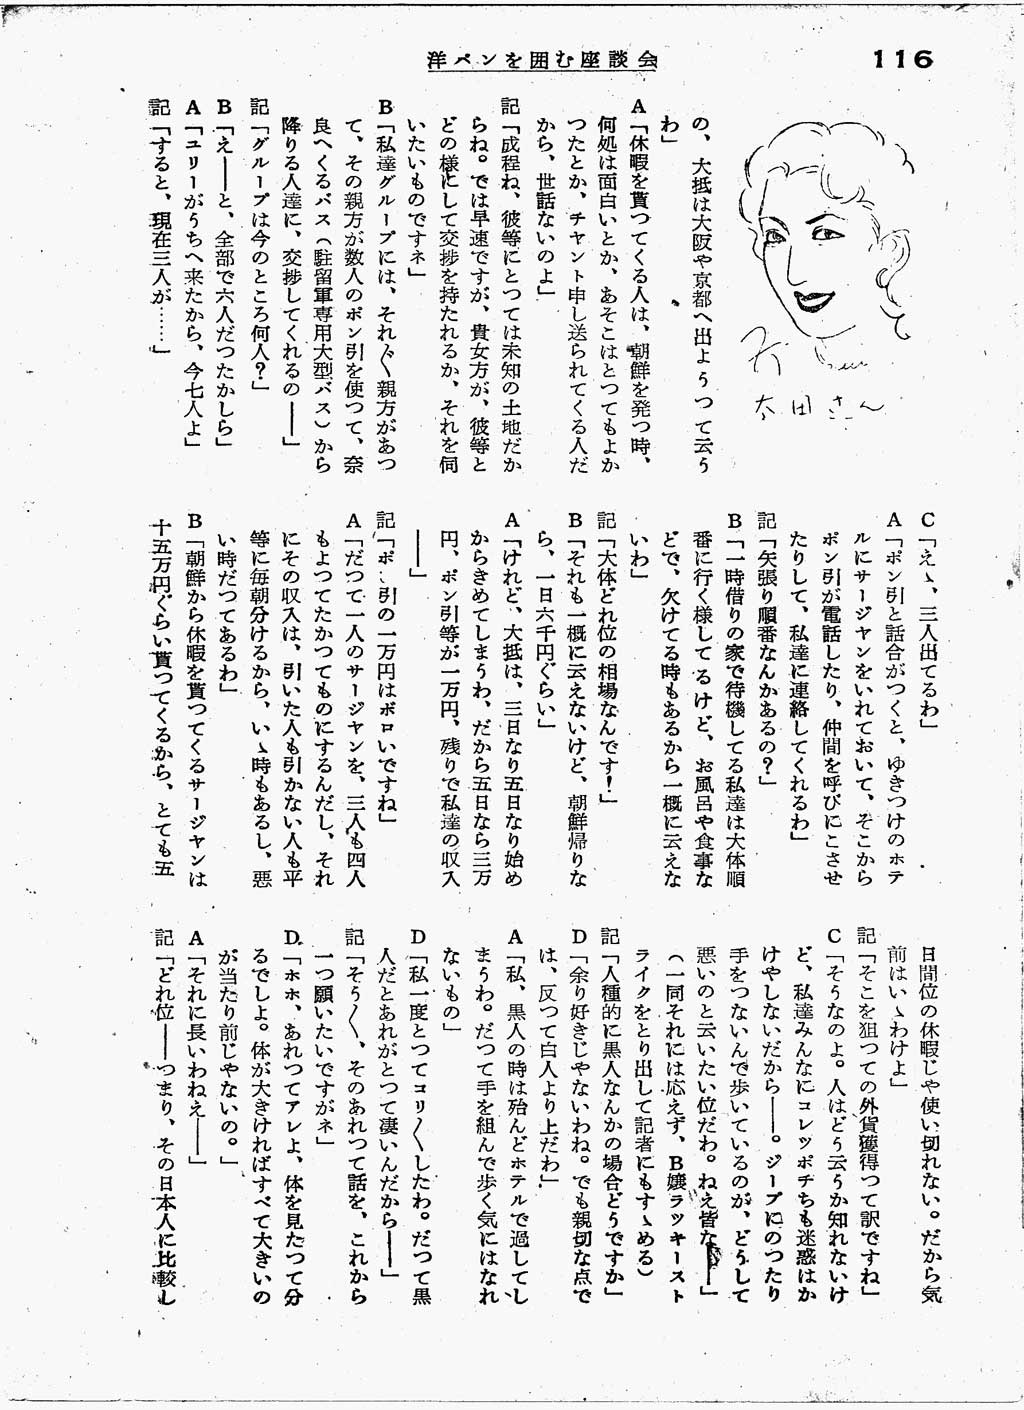 洋パンを囲む座談会
116
太田さん
の、大抵は大阪や京都へ出ようつて云う
わ」
A「休暇を貰つてくる人は、朝鮮を発つ時、
何処は面白いとか、あそこはとつてもよか
つたとか、チャント申し送られてくる人だ
から、世話ないのよ」
記「成程ね、彼等にとつては未知の土地だか
らね。では早速ですが、貴女方が、彼等と
どの様にして交捗を持たれるか、それを伺
いたいものですネ」
B「私達グループには、それ〲親方があつ
て、その親方が数人のポン引を使つて、奈
良へくるバス（駐留軍専用大型バス）から
降りる人達に、交捗してくれるの――」
記「グループは今のところ何人？」
B「え――と、全部で六人だつたかしら」
A「ユリーがうちへ来たから、今七人よ」
記「すると、現在三人が……」
C「えゝ、三人出てるわ」
A「ポン引と話合がつくと、ゆきつけのホテ
ルにサージャンをいれておいて、そこから
ポン引が電話したり、仲間を呼びにこさせ
たりして、私達に連絡してくれるわ」
記「矢張り順番なんかあるの？」
B「一時借りの家で待機してる私達は大体順
番に行く様してるけど、お風呂や食事な
どで、欠けてる時もあるから一概に云えな
いわ」
記「大体どれ位の相場なんです！」
B「それも一概に云えないけど、朝鮮帰りな
ら、一日六千円ぐらい」
A「けれど、大抵は、三日なり五日なり始め
からきめてしまうわ、だから五日なら三万
円、ポン引等が一万円、残りで私達の収入
――」
記「ポン引の一万円はボロいですね」
A「だつて一人のサージャンを、三人も四人
もよつてたかつてものにするんだし、それ
にその収入は、引いた人も引かない人も平
等に毎朝分けるから、いゝ時もあるし、悪
い時だつてあるわ」
B「朝鮮から休暇を貰つてくるサージャンは
十五万円ぐらい貰つてくるから、とても五
日間位の休暇じや使い切れない。だから気
前はいゝわけよ」
記「そこを狙つての外貨獲得つて訳ですね」
C「そうなのよ。人はどう云うか知れないけ
ど、私達みんなにコレッポチも迷惑はか
けやしないだから――。ジープにのつたり
手をつないんで歩いているのが、どうして
悪いのと云いたい位だわ。ねえ皆な――」
（一同それには応えず、B嬢ラッキースト
ライクをとり出して記者にもすゝめる）
記「人種的に黒人なんかの場合どうですか」
D「余り好きじゃないわね。でも親切な点で
は、反つて白人より上だわ」
A「私、黒人の時は殆んどホテルで過してし
まうわ。だつて手を組んで歩く気にはなれ
ないもの」
D「私一度とつてコリ〳〵したわ。だつて黒
人だとあれがとつて凄いんだから――」
記「そう〳〵、そのあれつて話を、これから
一つ願いたいですがネ」
D「ホホ、あれつてアレよ、体を見たつて分
るでしよ。体が大きければすべて大きいの
が当たり前じゃないの。」
A「それに長いわねえ――」
記「どれ位――つまり、その日本人に比較し